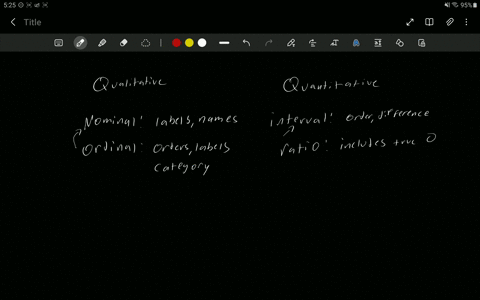 5:25
95%
Title
Qualitative
Nominal: labels, names
Ordinal: orders, labels
category
Quantitative
interval: order, difference
ratio: includes true 0